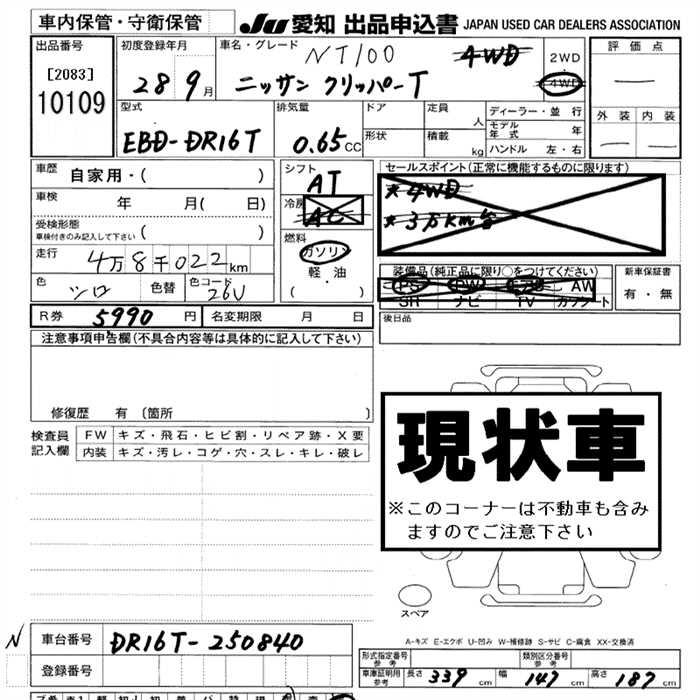 車内保管・守衛保管
JU 愛知 出品申込書 JAPAN USED CAR DEALERS ASSOCIATION
出品番号
[2083]
10109
初度登録年月
28 9月
車名・グレード NT100 4WD
ニッサン クリッパーT
2WD
4WD
評価点
外装 内装
型式
EBD-DR16T
排気量
0.65CC
ドア
形状
定員 人
積載 kg
ディーラー・並行
モデル年式 年
ハンドル 左・右
車歴 自家用・( )
車検 年 月( 日)
受検形態
車検付きのみ記入して下さい ( )
走行 4万8千022km
色 シロ 色替 色コード 26U
シフト
AT
冷房
AC
燃料
ガソリン
軽・油
・( )
セールスポイント(正常に機能するものに限ります)
*4WD
*3万Km台
装備品(純正品に限り○をつけてください)
PS PW エアB AW
SR ナビ TV カワシート
新車保証書
有・無
R券 5990 円 名変期限 月 日
後日品
注意事項申告欄(不具合内容等は具体的に記入して下さい)
修復歴 有 〔箇所 〕
検査員記入欄
FW キズ・飛石・ヒビ割・リペア跡・X要
内装 キズ・汚レ・コゲ・穴・スレ・キレ・破レ
現状車
※このコーナーは不動車も含み
ますのでご注意下さい
スペア
A-キズ E-エクボ U-凹み W-補修跡 S-サビ C-腐食 XX-交換済
N 車台番号 DR16T-250840
登録番号
形式指定番号 参考 類別区分番号 参考
車庫証明用 参考 長さ 339 cm 幅 147 cm 高さ 187 cm